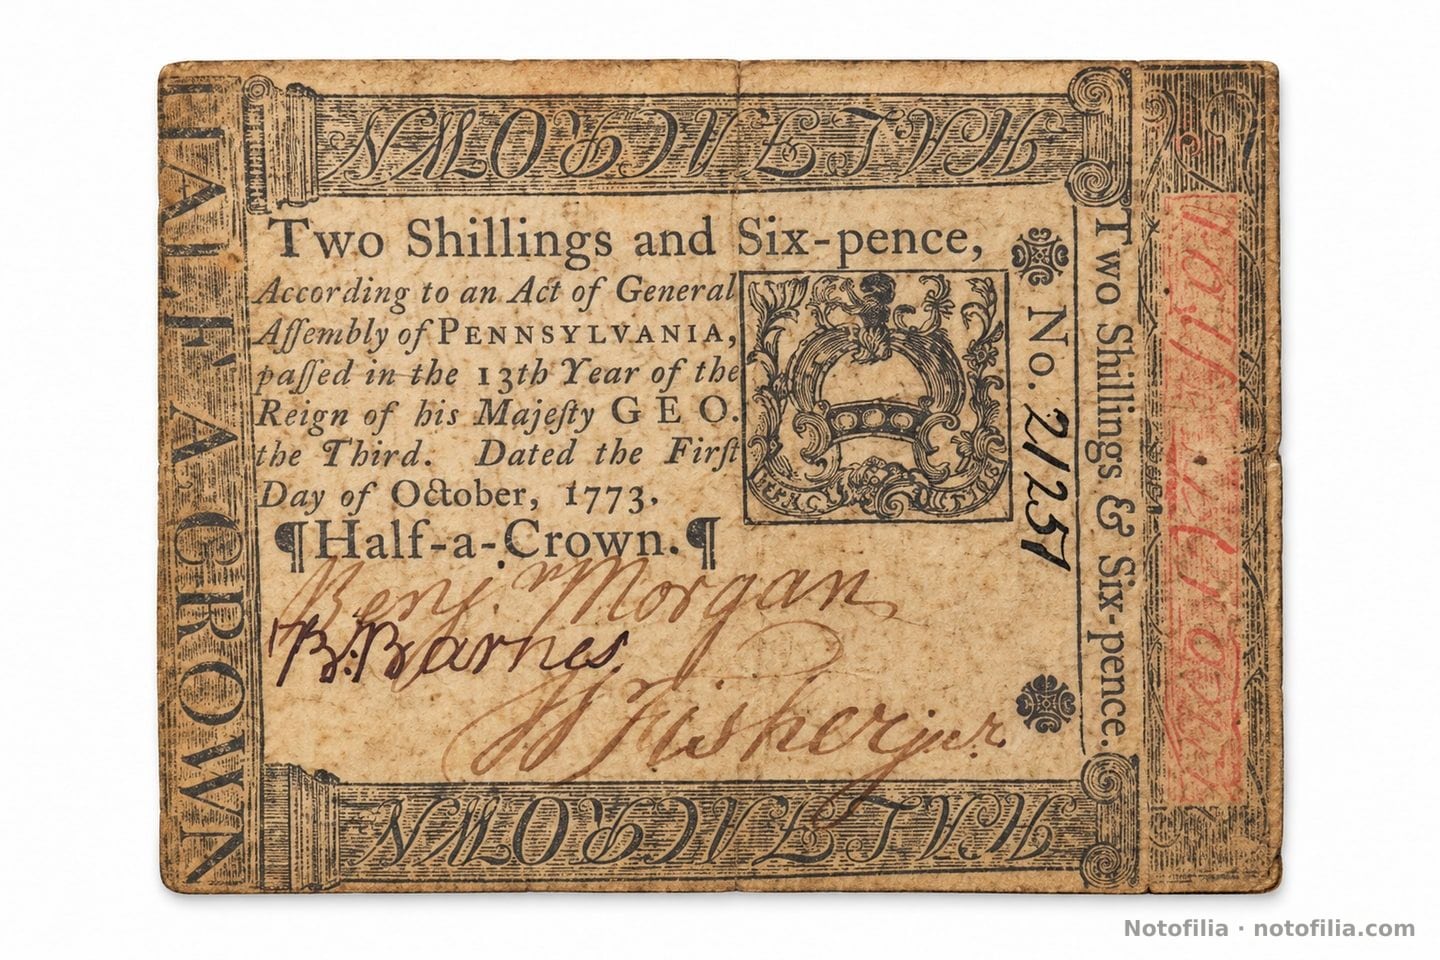 HALF A CROWN
HALF A CROWN
Two Shillings and Six-pence,
According to an Act of General
Aſſembly of PENNSYLVANIA,
paſſed in the 13th Year of the
Reign of his Majeſty GEO.
the Third. Dated the Firſt
Day of October, 1773.
¶Half-a-Crown.¶
Benj. Morgan
B. Barnes
Fisher jur.
No. 21257
Two Shillings & Six-pence.
HALF A CROWN
Notofilia · notofilia.com